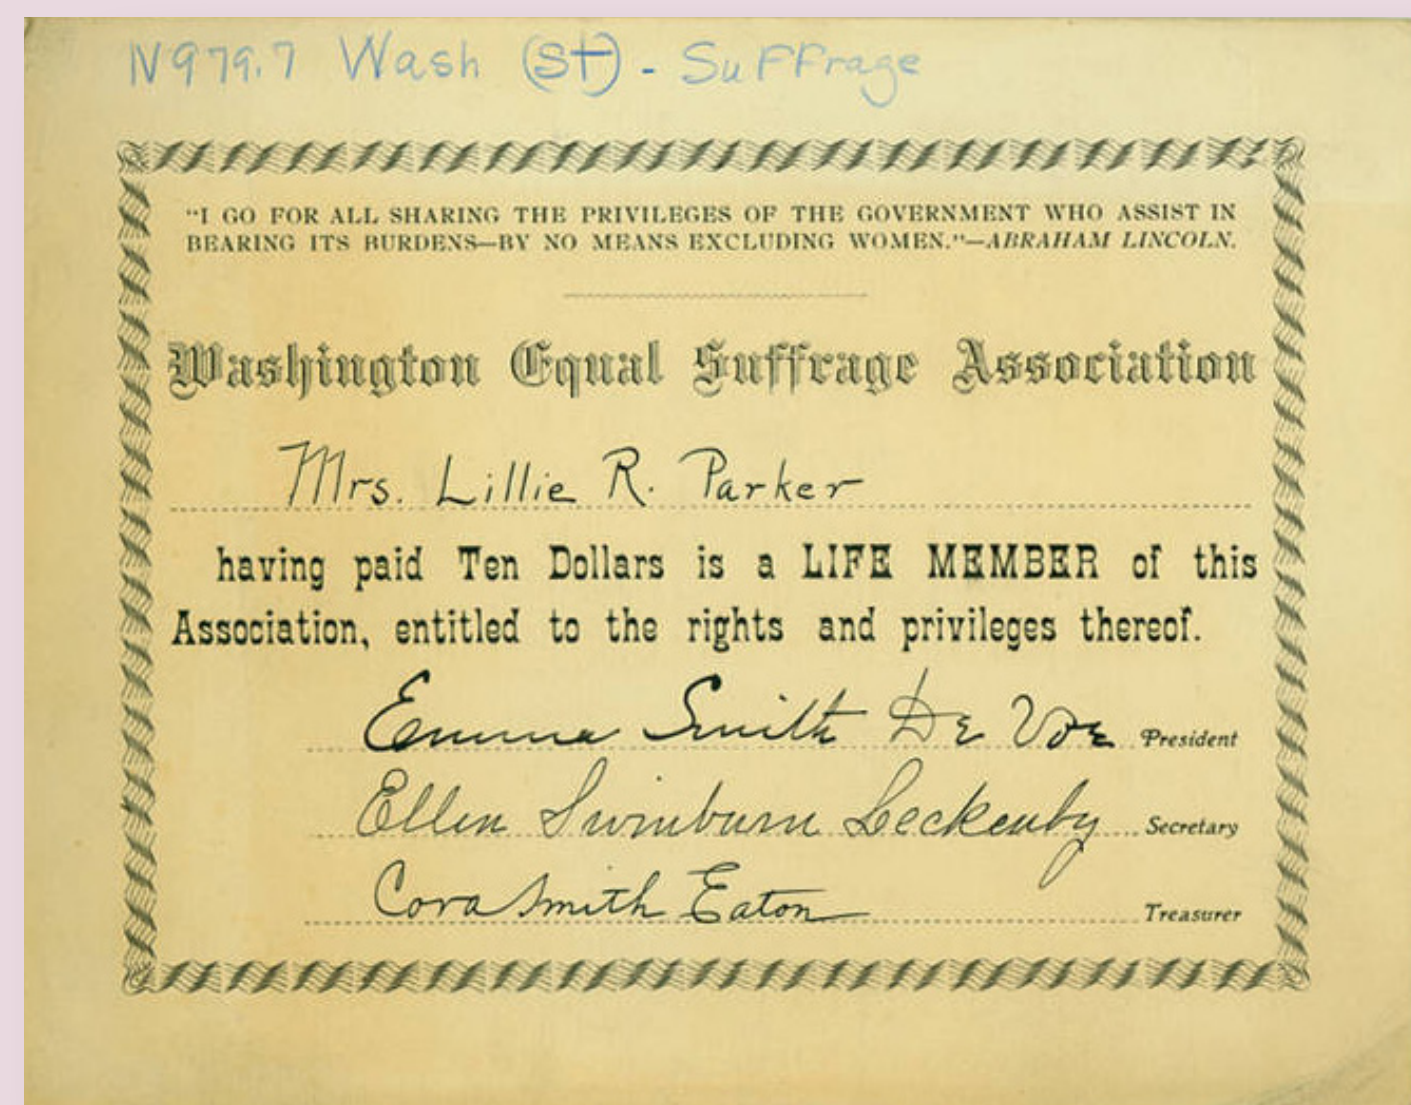 N979.7 Wash (St) - Suffrage
"I GO FOR ALL SHARING THE PRIVILEGES OF THE GOVERNMENT WHO ASSIST IN
BEARING ITS BURDENS—BY NO MEANS EXCLUDING WOMEN."—ABRAHAM LINCOLN.
Washington Equal Suffrage Association
Mrs. Lillie R. Parker
having paid Ten Dollars is a LIFE MEMBER of this
Association, entitled to the rights and privileges thereof.
Emma Smith De Voe President
Ellen Swinburn Leckenby Secretary
Cora Smith Eaton Treasurer